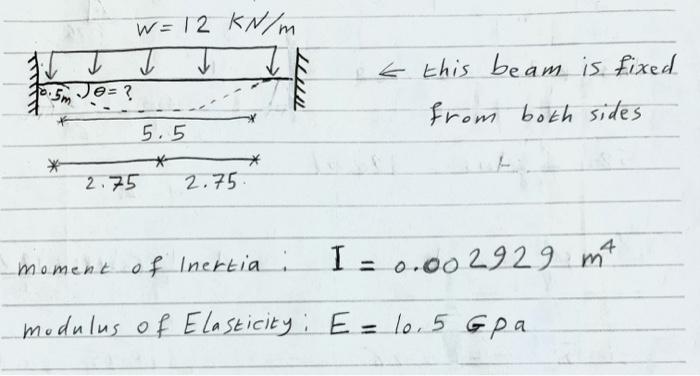 W = 12 KN/m
← this beam is fixed
from both sides
0.5m θ = ?
5.5
2.75 2.75
moment of Inertia : I = 0.002929 m⁴
modulus of Elasticity : E = 10.5 Gpa